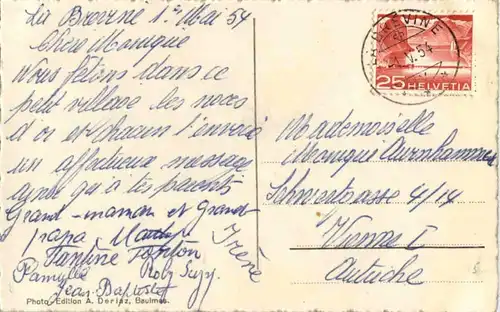 La Brévine 1er Mai 54
Chère Monique
Nous fêtons dans ce
petit village les noces
d'or et chacun t'envoie
un affectueux message
ainsi qu'à tes parents
Grand-maman et Grand-
papa
Fanfine Tonton
Irène
Pamylle Roby Suzy.
Jean-Baptiste
Photo. Edition A. Deriaz, Baulmes.
LA BRÉVINE
1.V.54
25 HELVETIA
Mademoiselle
Monique Aurnhammer
4/14
Vienne I
Autriche